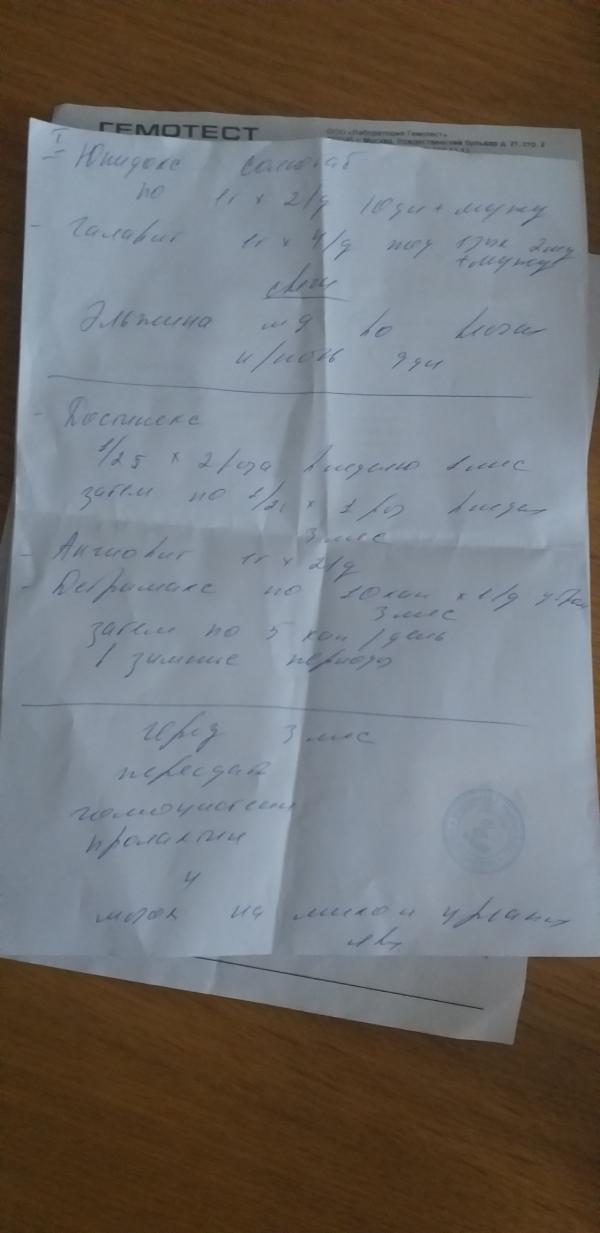 ГЕМОТЕСТ
ООО «Лаборатория Гемотест»
г. Москва, Рождественский бульвар д. 21, стр. 2
I Юнидокс солютаб
по 1т х 2/д 10дн + мужу
- Галавит 1т х 4/д под язык
+ мужу
свечи
Эльжина
н/ночь 9дн
- Достинекс
1/2т х 2 раза в неделю 1 мес
затем по 1/2т х 1 раз в неделю
3 мес
- Ангиовит 1т х 2/д
- Детримакс по 10 кап х 1/д утром
3 мес
затем по 5 кап / день
зимние периоды
Через 3 мес
пересдать
гомоцистеин
пролактин
и
мазок на микоп и уреапл